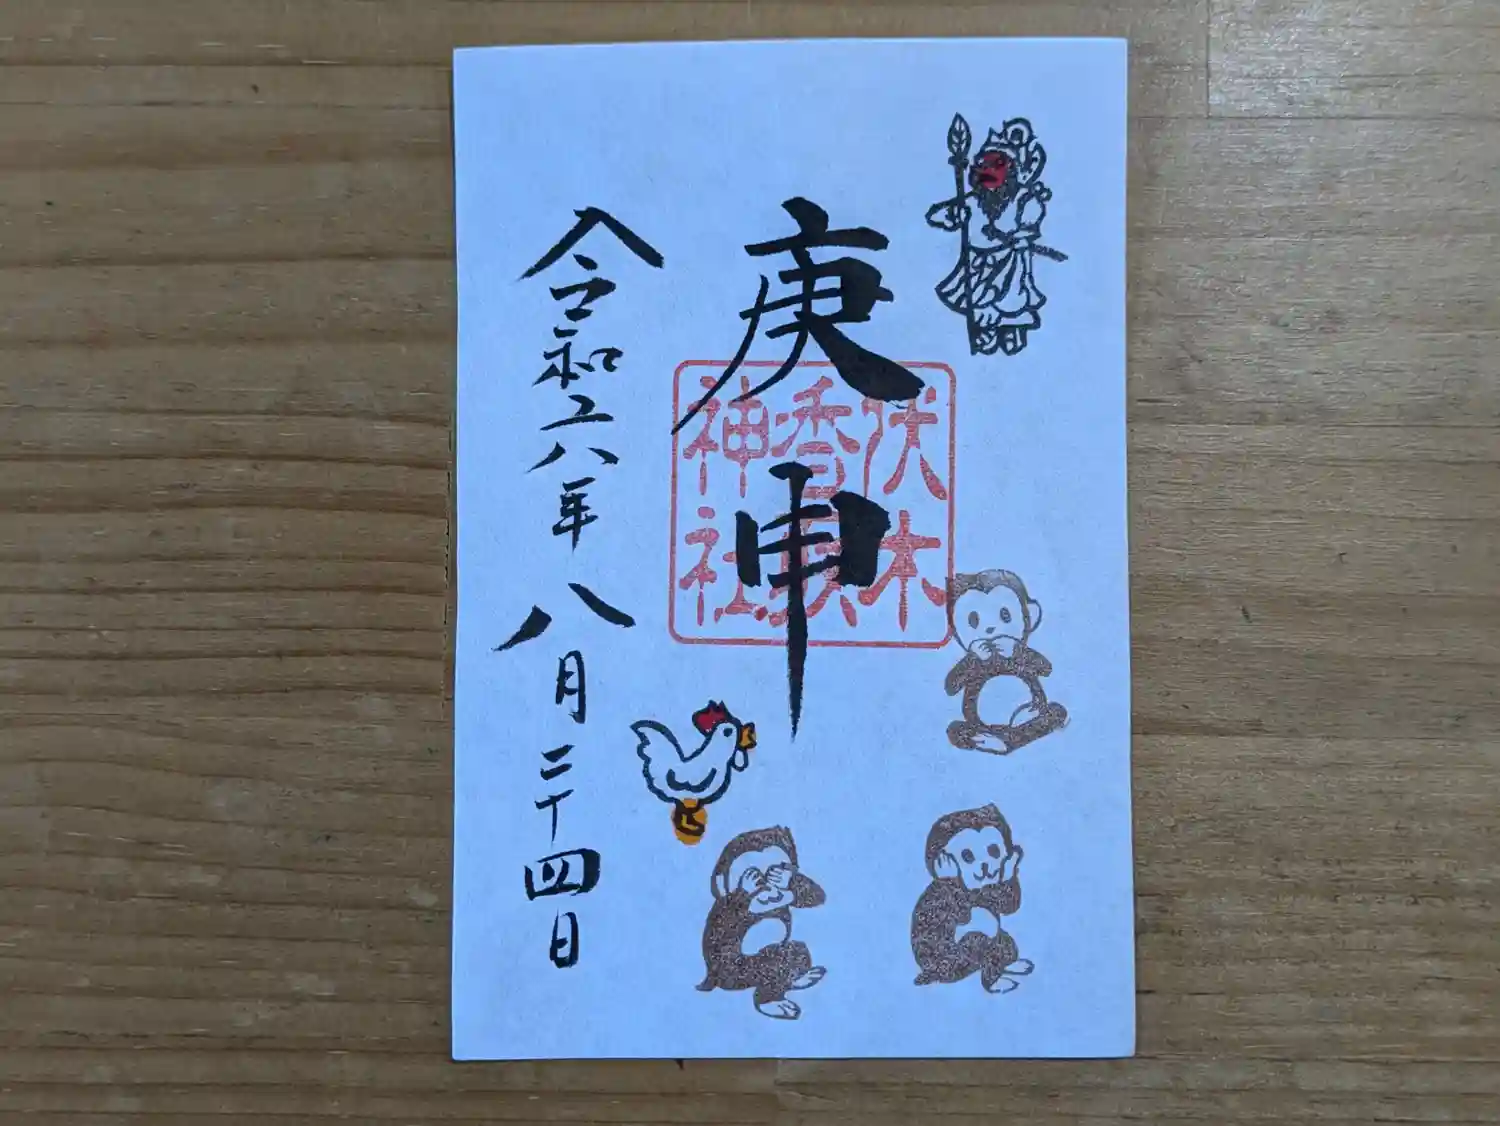 庚申
伏木
香取
神社
令和六年八月二十四日